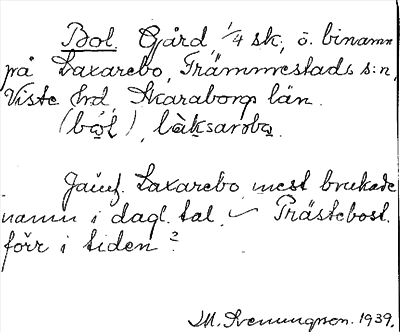 Bol Gård, 1/4 sk, ö. binamn
på Laxarebo, Främmestads s:n,
Viste hrd, Skaraborgs län.
(bo̯l), làksarobo̯.
Jämf. Laxarebo mest brukade
namn i dagl. tal. ~ Prästebost.
förr i tiden?
M. Svenungson. 1939.